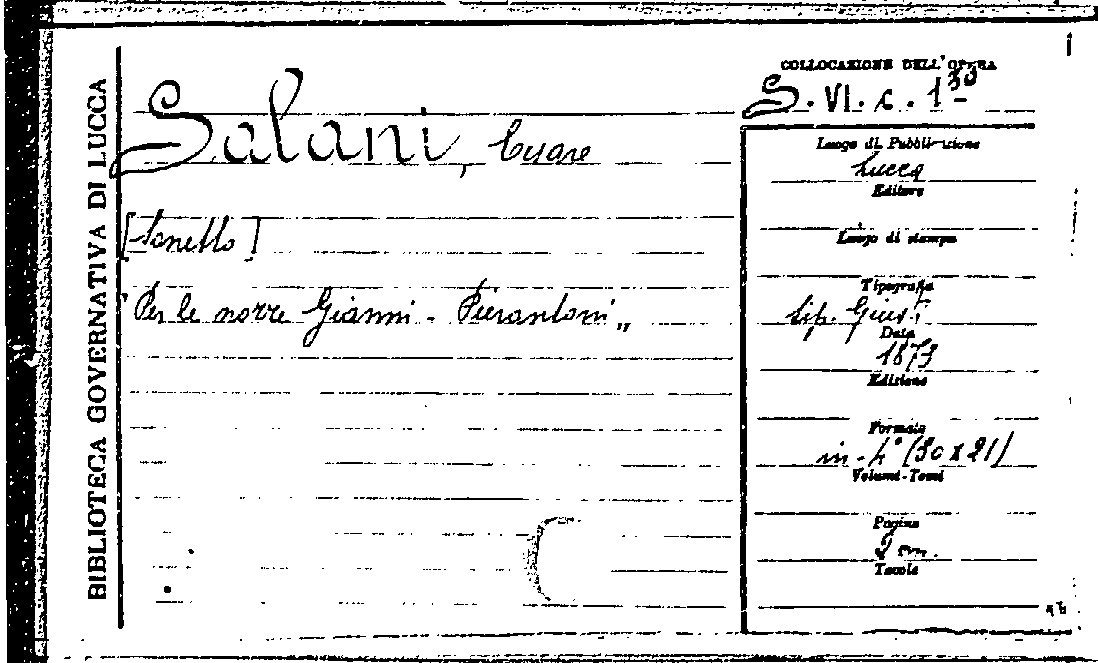 BIBLIOTECA GOVERNATIVA DI LUCCA
Salani, Cesare
[Sonetto]
"Per le nozze Gianni - Pierantoni"
COLLOCAZIONE DELL'OPERA
S. VI. c. 1 30
Luogo di Pubblicazione
Lucca
Editore
Luogo di stampa
Tipografia
tip. Giusti
Data
1873
Edizione
Formato
in-4° (30 x 21)
Volumi-Tomi
Pagine
2 nn.
Tavole